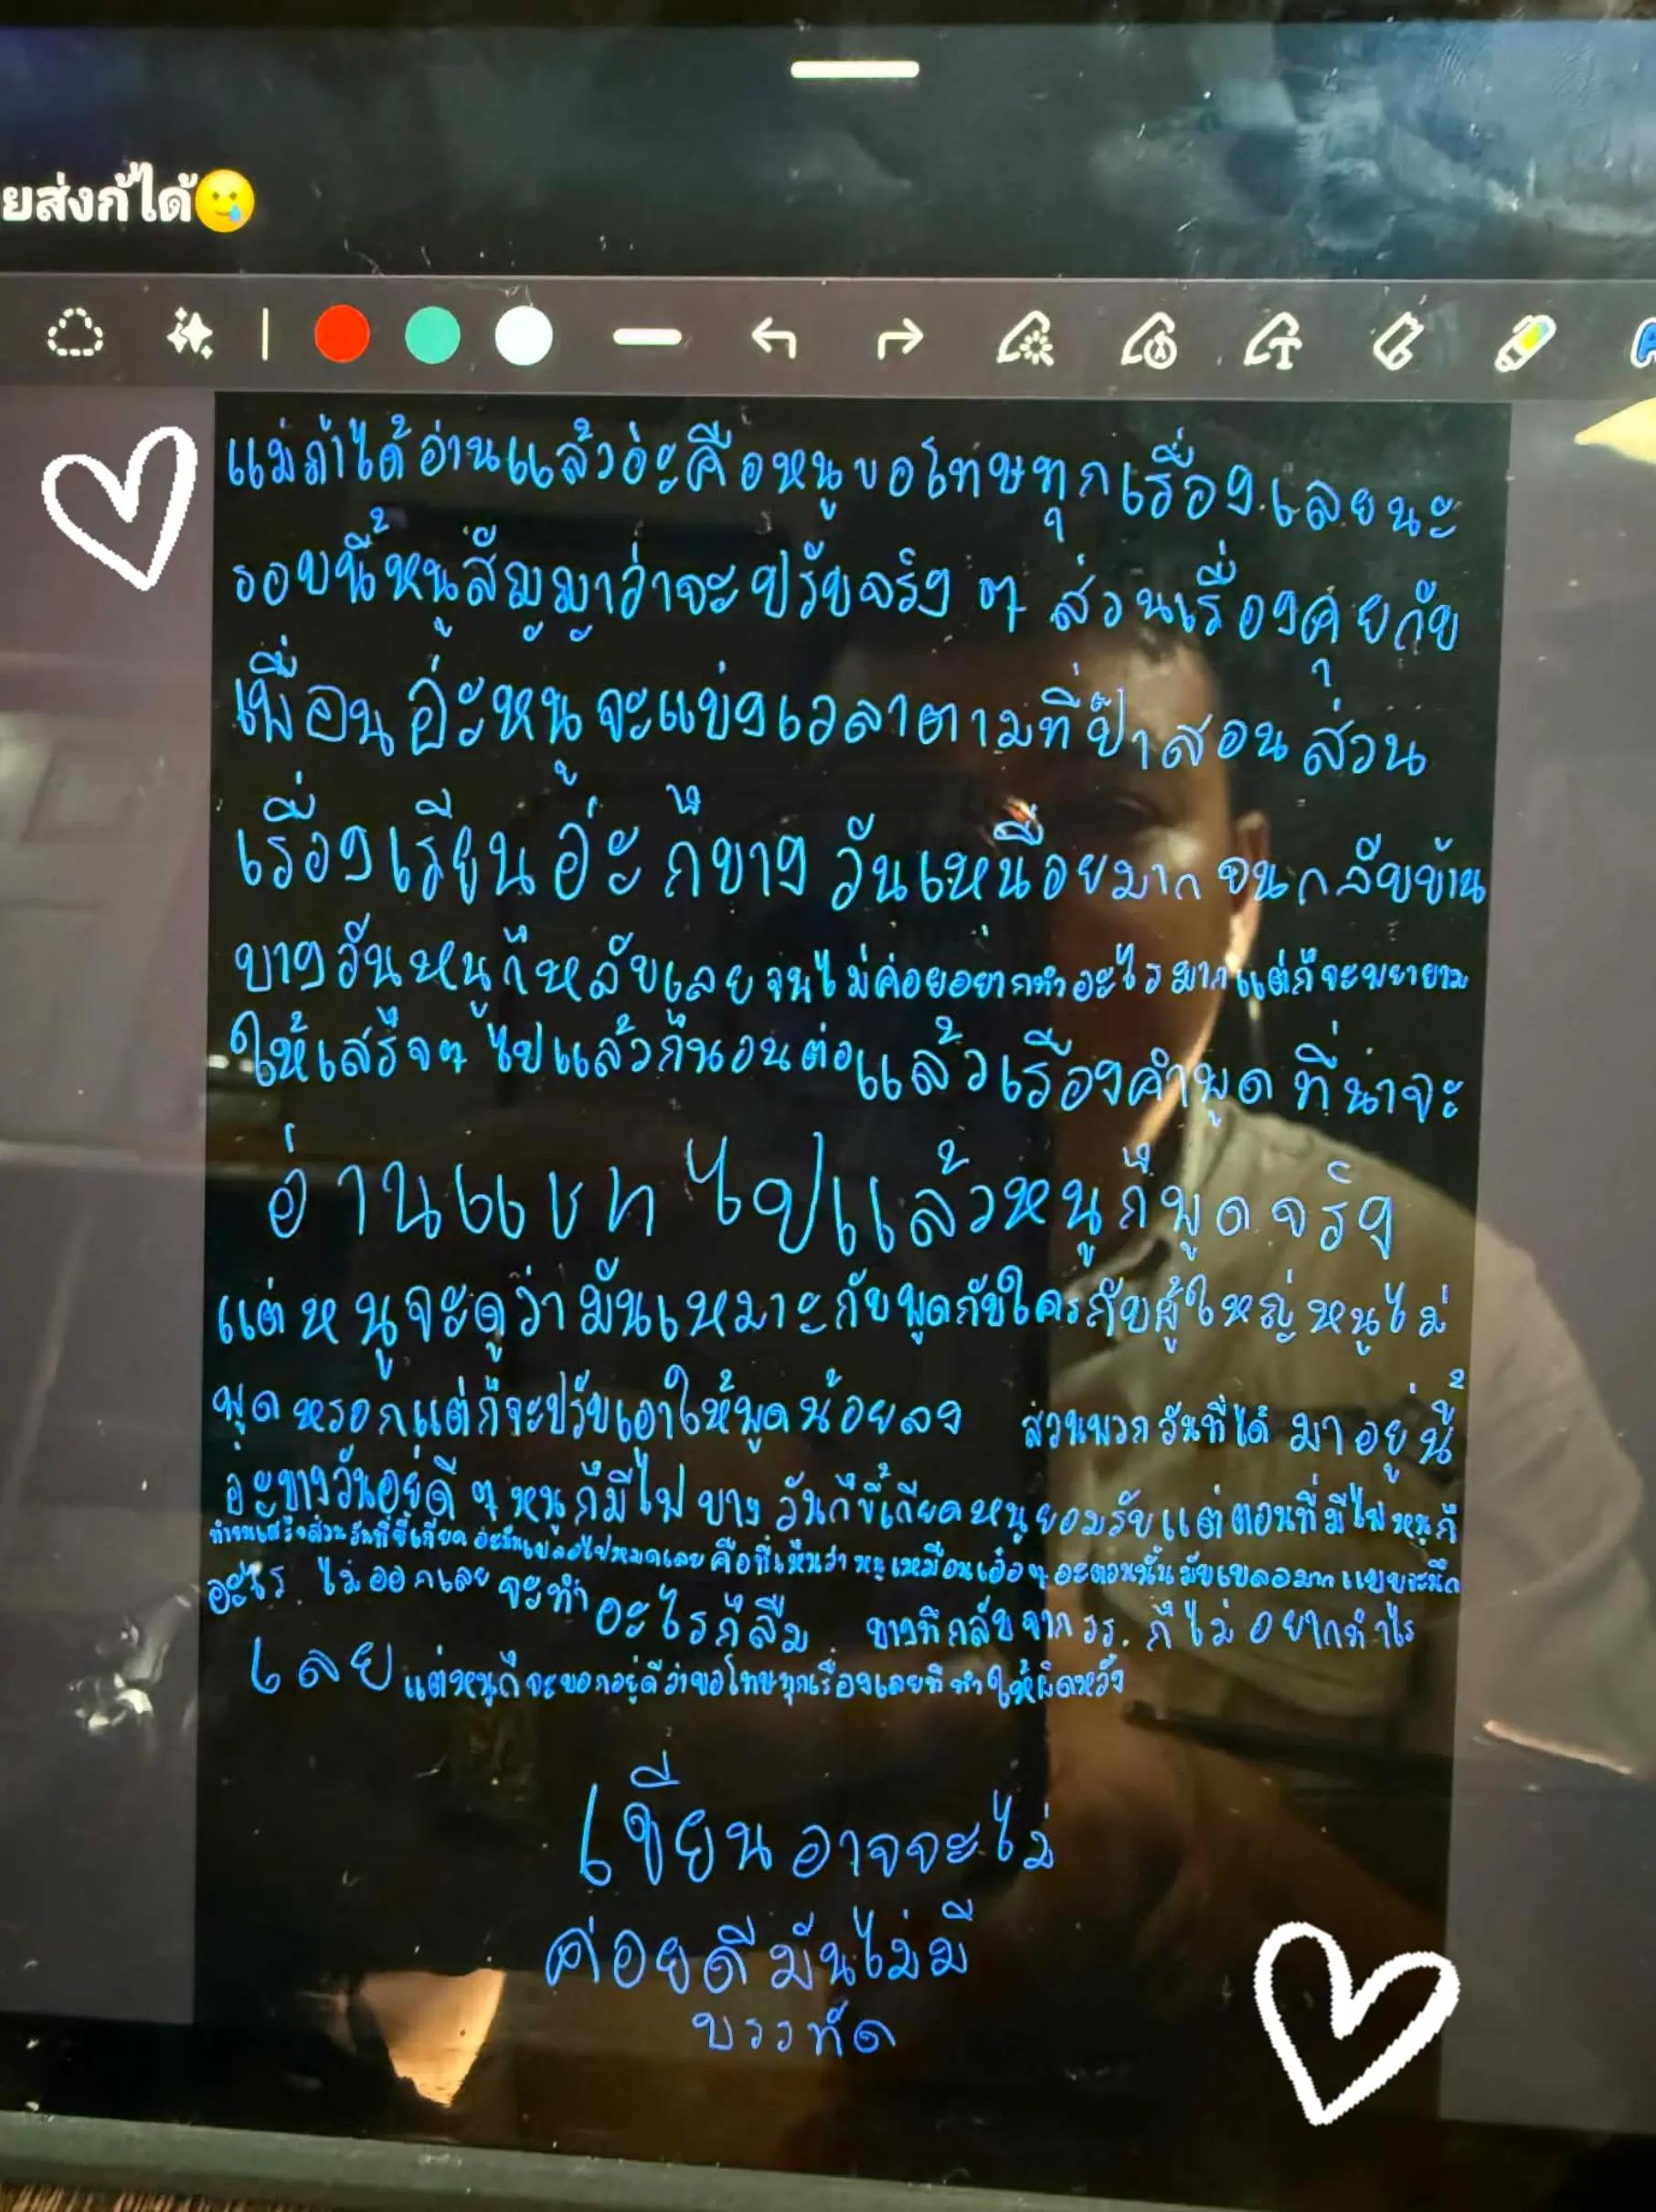 ยส่งก้ได้🥲
แม่ถ้าได้อ่านแล้วอ่ะคือหนูขอโทษทุกเรื่องเลยนะ
รอบนี้หนูสัญญาว่าจะปรับจริง ๆ ส่วนเรื่องคุยกับ
เพื่อนอ่ะหนูจะแบ่งเวลาตามที่ป๊าสอนส่วน
เรื่องเรียนอ่ะ ก็บางวันเหนื่อยมาก จนกลับบ้าน
บางวันหนูก็หลับเลยจนไม่ค่อยอยากทำอะไรมากแต่ก็จะพยายาม
ให้เสร็จๆ ไปแล้วก็นอนต่อแล้วเรื่องคำพูด ที่น่าจะ
อ่านแชท ไปแล้วหนูก็พูดจริง
แต่หนูจะดูว่ามันเหมาะกับพูดกับใครกับผู้ใหญ่หนูไม่
พูดหรอกแต่ก็จะปรับเอาให้พูดน้อยลง ส่วนพวกวันที่ได้มาอยู่นี้
อ่ะบางวันอยู่ดี ๆ หนูก็มีไฟ บางวันก็ขี้เกียดหนูยอมรับแต่ตอนที่มีไฟหนูก็
ทำจนเสร็จส่วนวันที่ขี้เกียด อ่ะมันเบลอไปหมดเลย คือที่เห็นว่าหนูเหมือนเอ๋อๆ อ่ะตอนนั้นมันเบลอมาก แบบจะนึก
อะไร ไม่ออกเลย จะทำอะไรก็ลืม บางทีกลับจาก รร. ก็ไม่อยากทำไร
เลย แต่หนูก็จะบอกอยู่ดีว่าขอโทษทุกเรื่องเลยที่ทำให้ผิดหวัง
เขียนอาจจะไม่
ค่อยดีมันไม่มี
บรรทัด